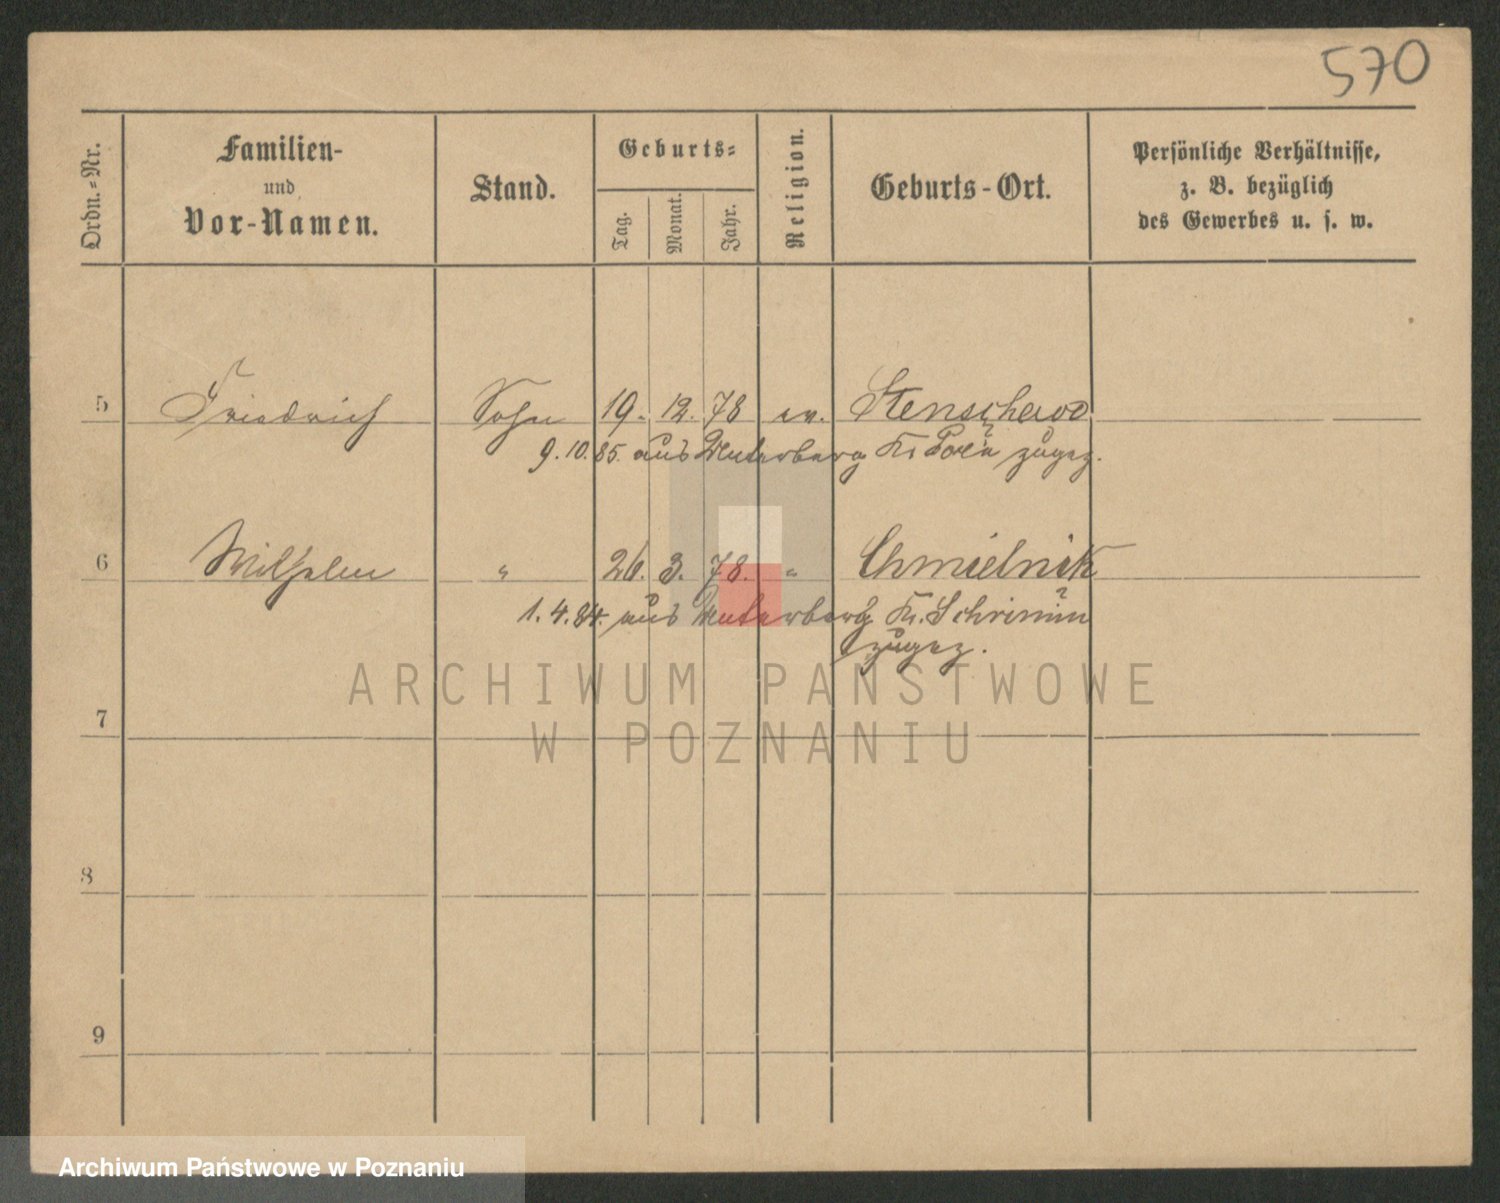 570
Ordn.-Nr.
Familien-
und
Vor-Namen.
Stand.
Geburts-
Tag.
Monat.
Jahr.
Religion.
Geburts-Ort.
Persönliche Verhältnisse,
z. B. bezüglich
des Gewerbes u. s. w.
5 Friedrich Sohn 19. 12. 78 ev. Stenschewo
9. 10. 85. aus Unterberg Kr. zugez.
6 Wilhelm " 26. 3. 78. " Chmielnik
1. 4. 84. aus Unterberg Kr. Schrimm
zugez.
ARCHIWUM PAŃSTWOWE
W POZNANIU
7
8
9
Archiwum Państwowe w Poznaniu